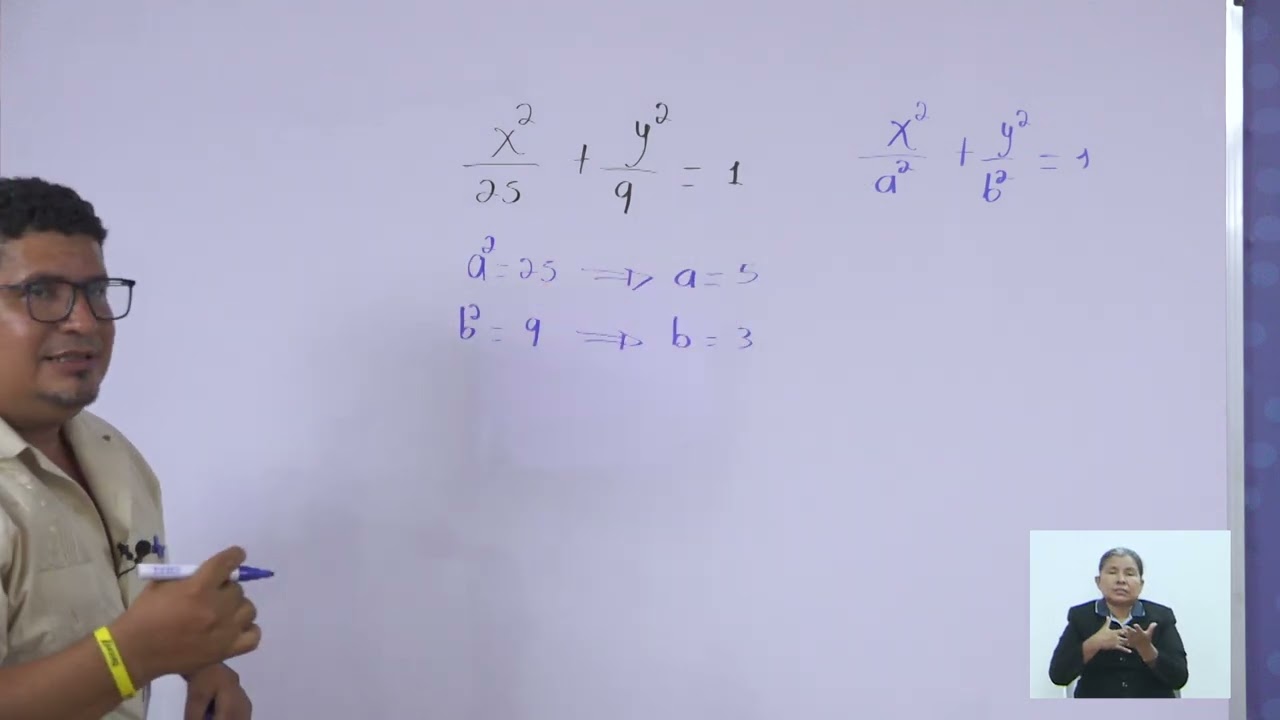 x²/25 + y²/9 = 1
x²/a² + y²/b² = 1
a² = 25 ⟹ a = 5
b² = 9 ⟹ b = 3